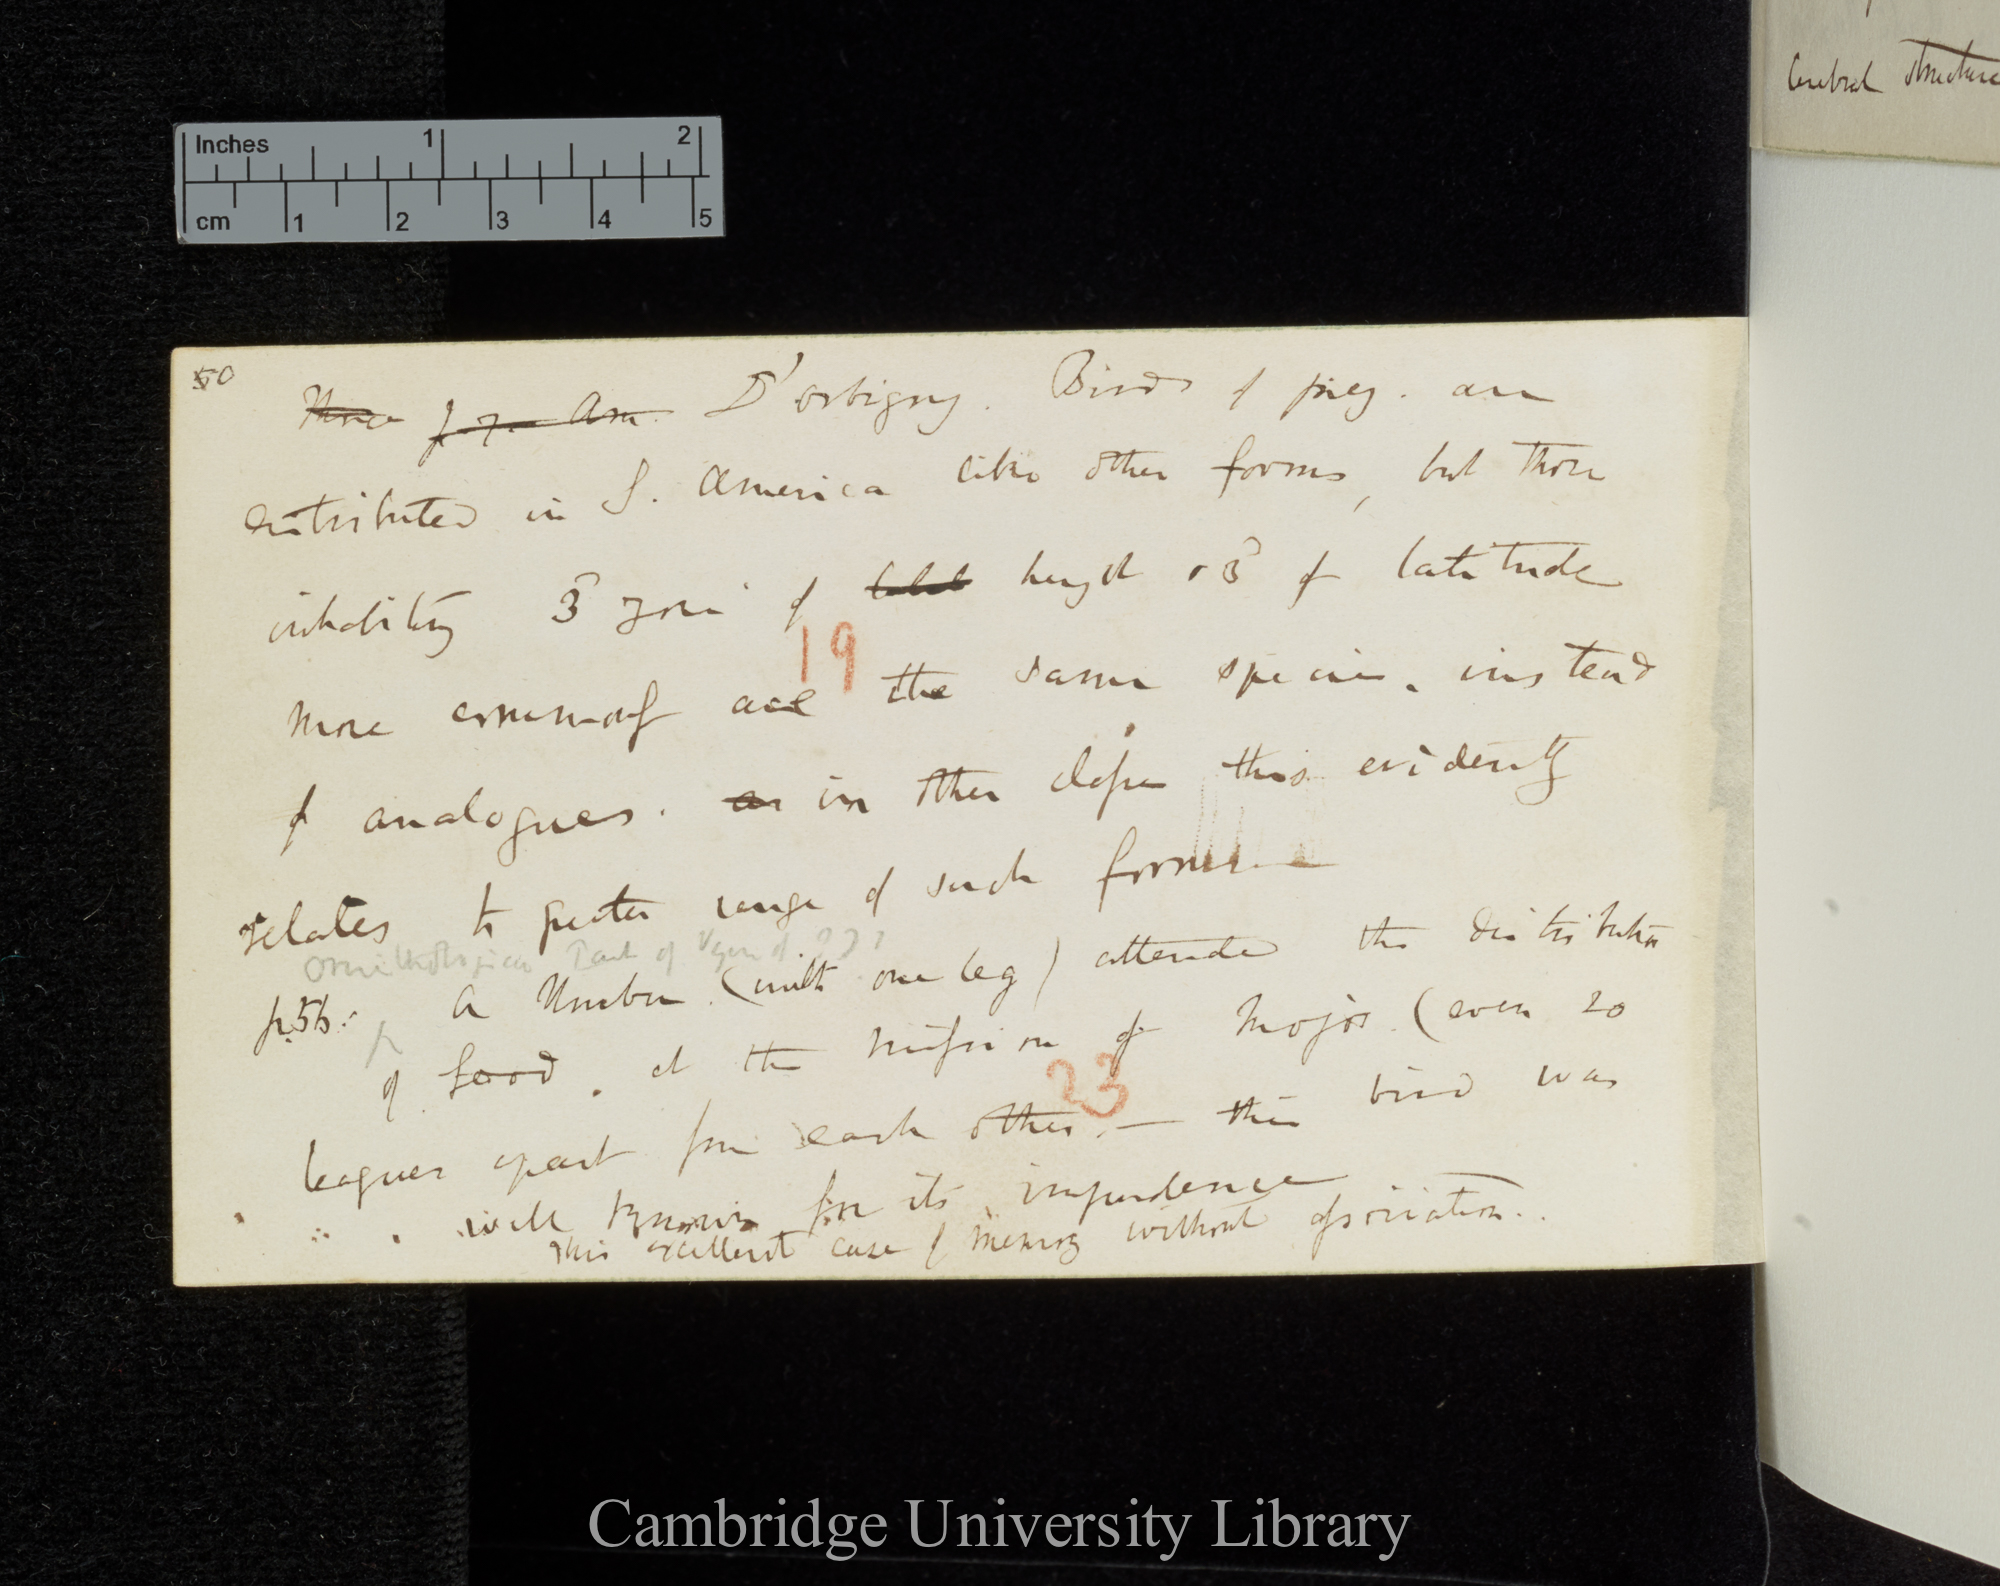 Cerebral structure
Inches 1 2
cm 1 2 3 4 5
50
D'orbigny. Birds of prey. are
distributed in S. America like other forms, but those
inhabiting 3d zone of height & 3d of latitude
19
more commonly are the same species. instead
of analogues. as in other slope this evidently
relates to greater range of such forms.—
Ornithological Part of Voyage
p. 56: a Number (with one leg) attended the distribution
of food. at the mission of Mojos. (even 20
23
leagues apart from each other.— this bird was
well known for its impudence
This excellent case of memory without association..
Cambridge University Library